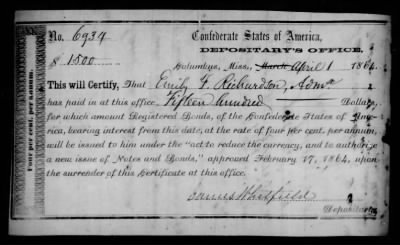 No. 6934
Confederate States of America,
$ 1500
DEPOSITARY'S OFFICE,
Columbus, Miss., March April 1 1864.
This will Certify, That Emily F. Richardson, Admx
has paid in at this office Fifteen hundred Dollars,
for which amount Registered Bonds, of the Confederate States of America,
bearing interest from this date, at the rate of four per cent. per annum,
will be issued to him under the "act to reduce the currency, and to authorize
a new issue of Notes and Bonds," approved February 17, 1864, upon
the surrender of this Certificate at this office.
James Whitfield
Depositary.
Four per cent. per annum.